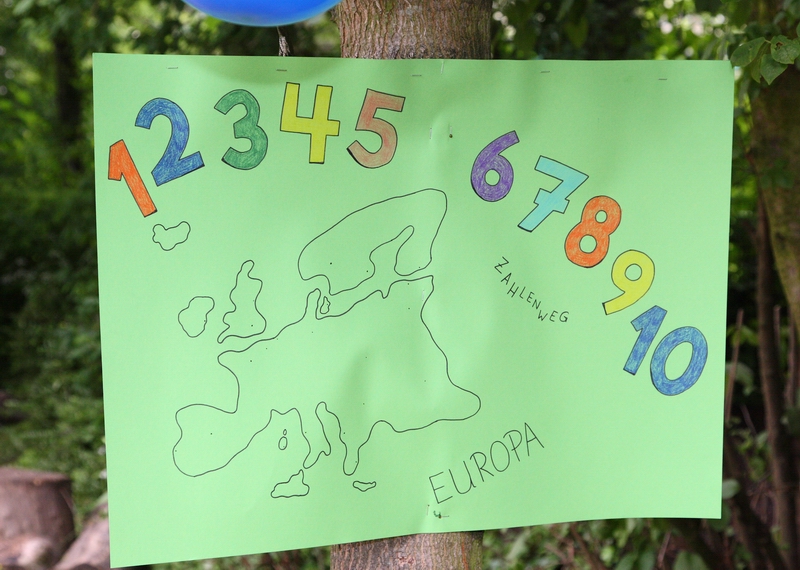 1 2 3 4 5 6 7 8 9 10
ZAHLENWEG
EUROPA